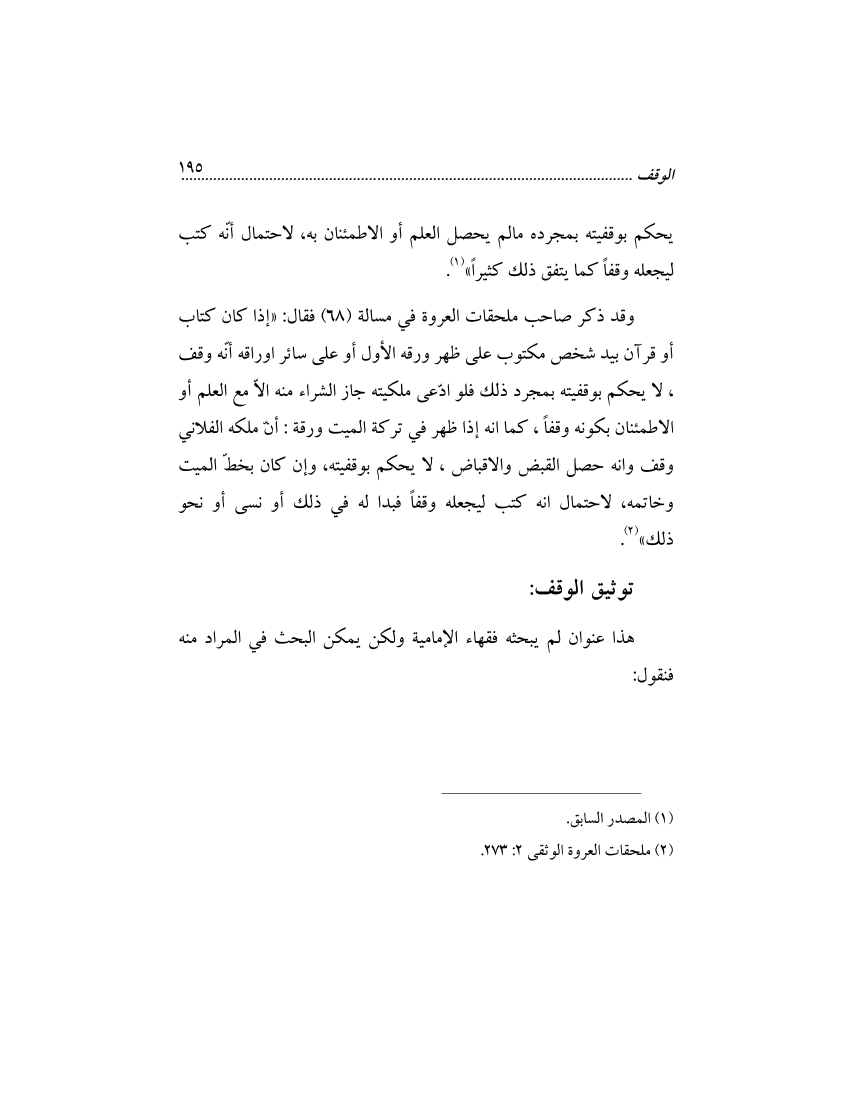 الوقف ................................................................................................................ ١٩٥
يحكم بوقفيته بمجرده مالم يحصل العلم أو الاطمئنان به، لاحتمال أنّه كتب
ليجعله وقفاً كما يتفق ذلك كثيراً»(١).
وقد ذكر صاحب ملحقات العروة في مسالة (٦٨) فقال: «إذا كان كتاب
أو قرآن بيد شخص مكتوب على ظهر ورقه الأول أو على سائر اوراقه أنّه وقف
، لا يحكم بوقفيته بمجرد ذلك فلو ادّعى ملكيته جاز الشراء منه الاّ مع العلم أو
الاطمئنان بكونه وقفاً ، كما انه إذا ظهر في تركة الميت ورقة : أنّ ملكه الفلاني
وقف وانه حصل القبض والاقباض ، لا يحكم بوقفيته، وإن كان بخطّ الميت
وخاتمه، لاحتمال انه كتب ليجعله وقفاً فبدا له في ذلك أو نسى أو نحو
ذلك»(٢).
توثيق الوقف:
هذا عنوان لم يبحثه فقهاء الإمامية ولكن يمكن البحث في المراد منه
فنقول:
(١) المصدر السابق.
(٢) ملحقات العروة الوثقى ٢: ٢٧٣.